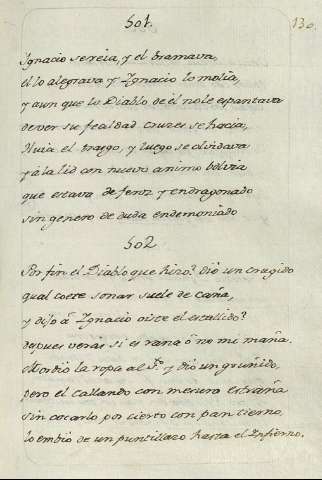 501.
130.
Ignacio se reia, y el bramava,
el lo alegrava y Ygnacio lo molia,
y aun que lo Diablo de él no le espantava
de ver su fealdad cruzes se hacia,
Huia el trasgo, y luego se olvidava
y á la lid con nuevo animo bolvia
que estava de feroz y endragonado
sin genero de duda endemoniado
502
Por fin el Diablo que hizo? dió un crugido
qual coete sonar suele de caña,
y dijo á Ygnacio oiste el estallido?
despues verás si es rana ó no mi maña.
Mordió la ropa al Sto. y dió un gruñido,
pero el callando con mesura estraña
sin cocarlo por cierto con pan tierno,
lo embio de un puntillazo hasta el Infierno.